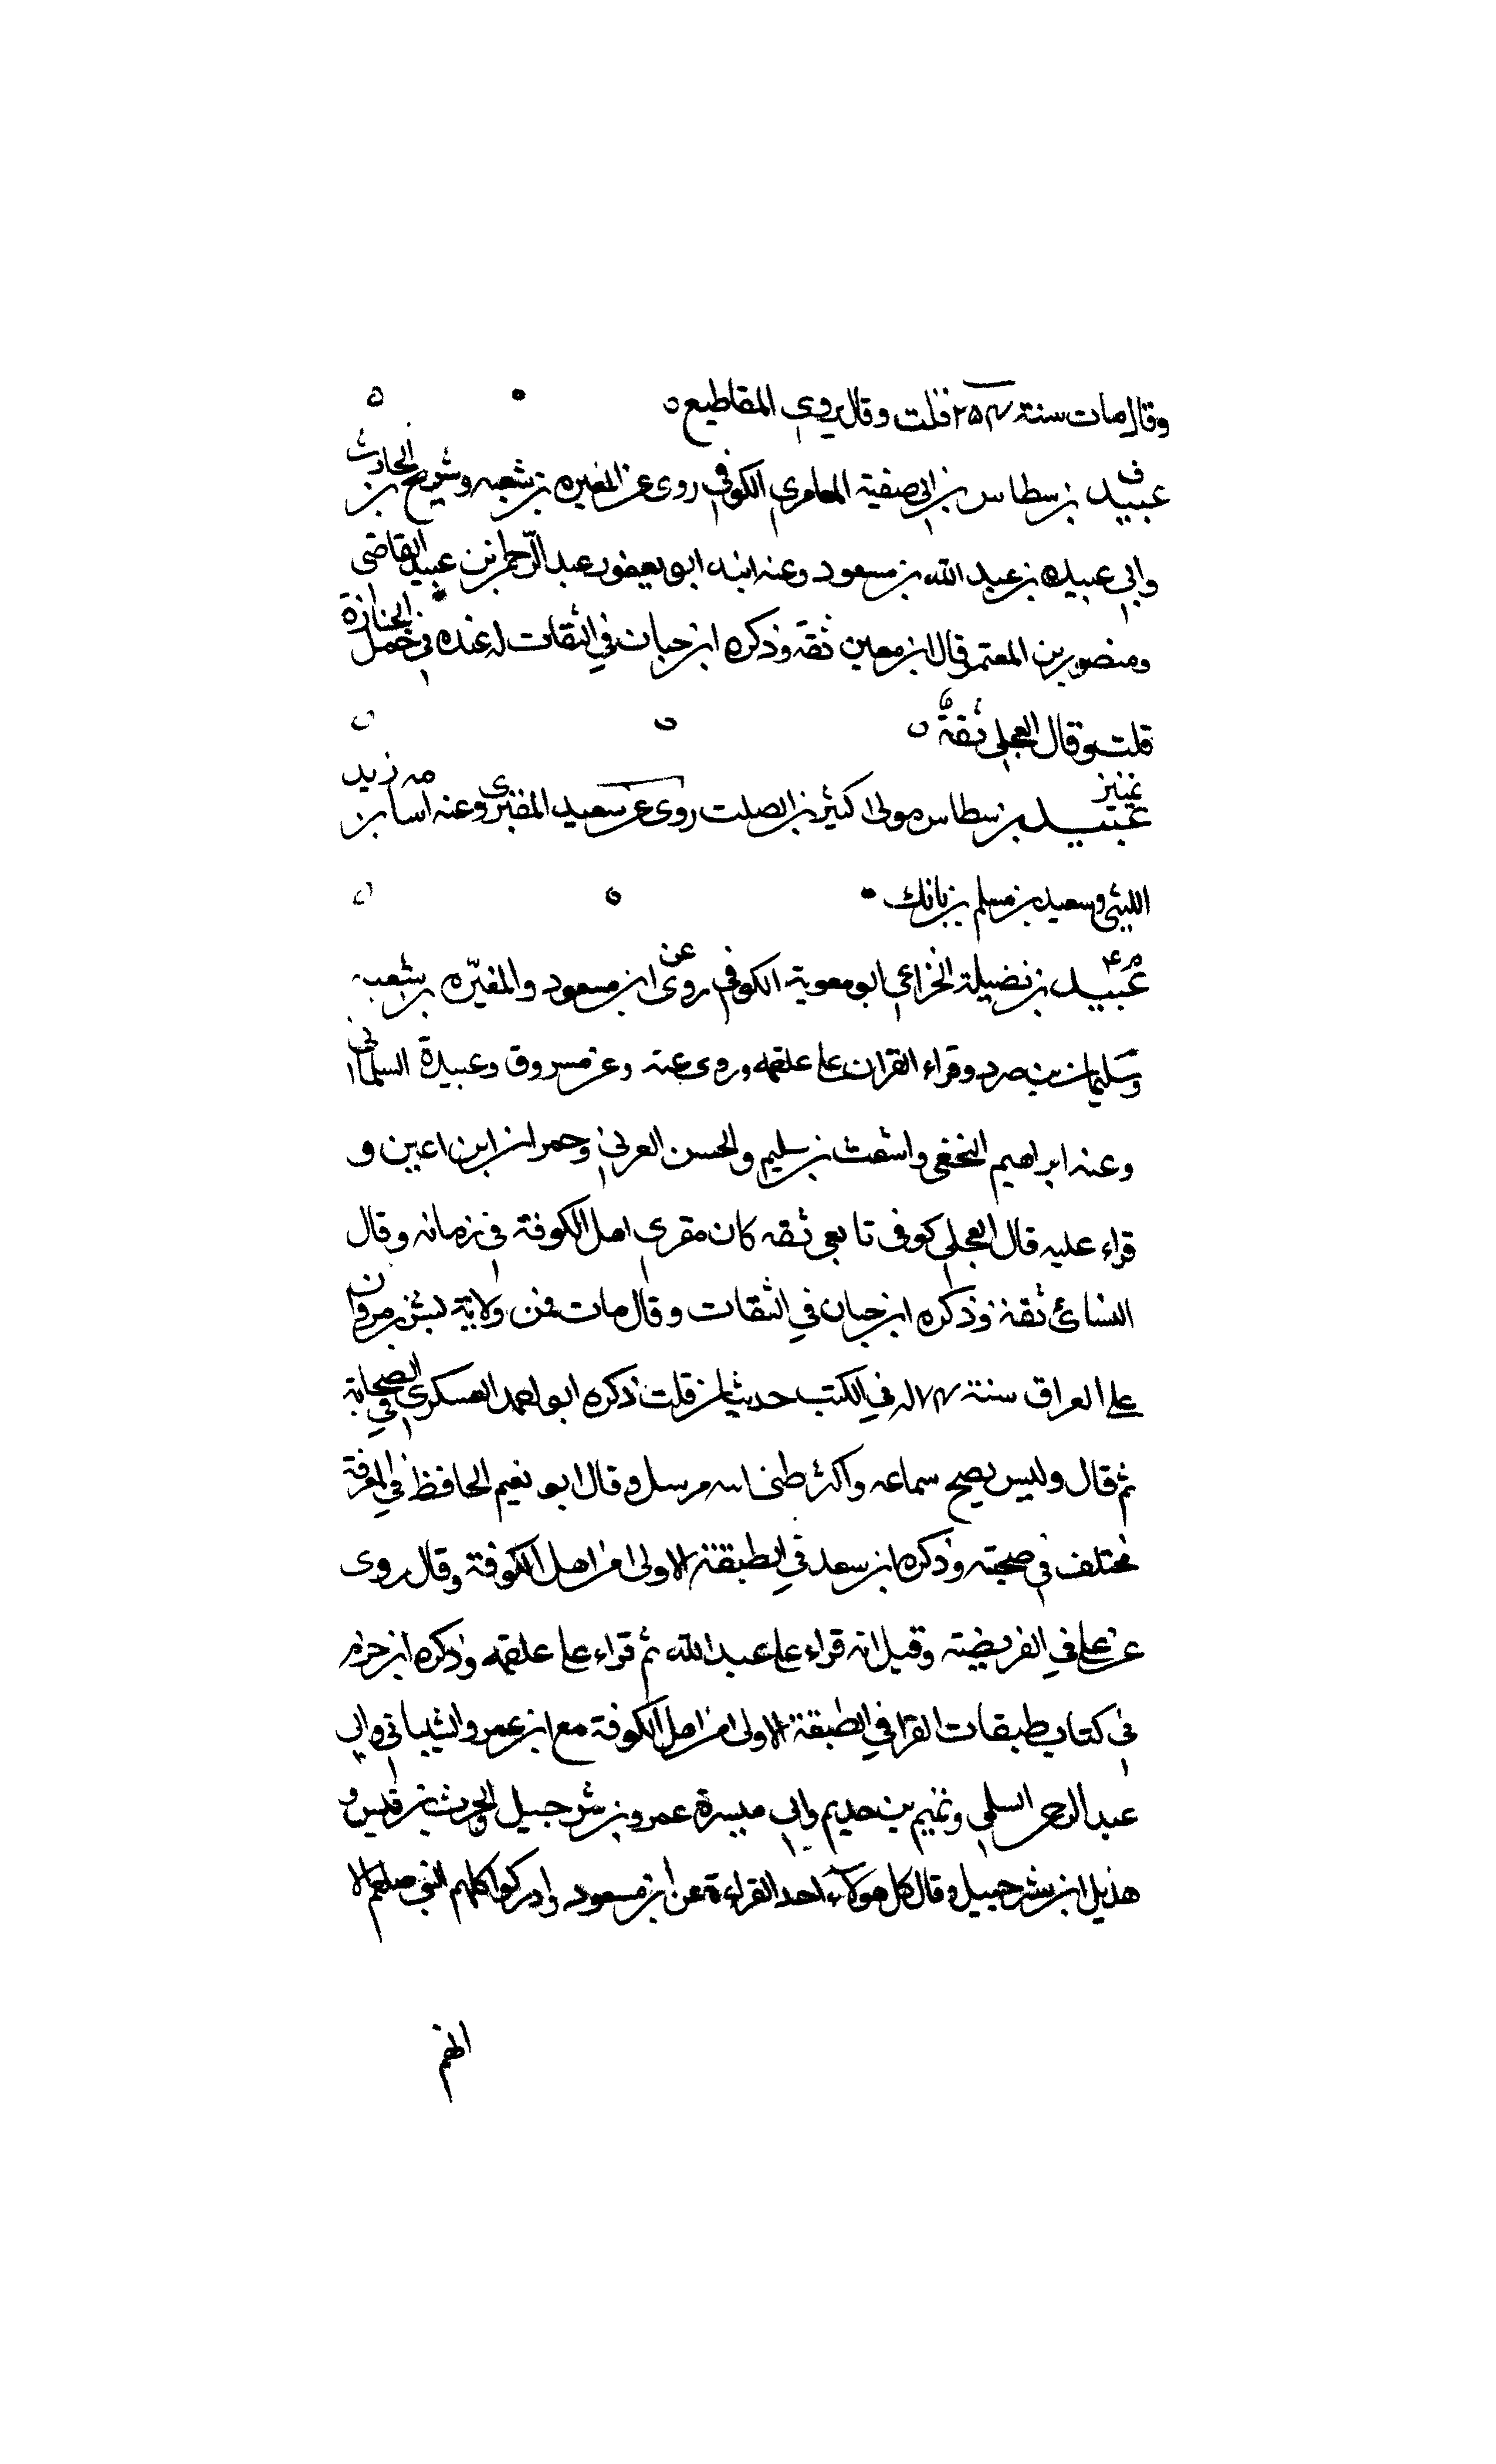 وقال مات سنة ٢٥٤ قلت وقال يروي المقاطيع
ق
عبيد بن نسطاس بن ابي صفية العامري الكوفي روى عن المغيره بن شعبه وشريح بن الحارث
وابي عبيده بن عبد الله بن مسعود وعنه ابنه ابو يعفور عبد الرحمن بن عبيد القاضي
ومنصور بن المعتمر قال ابن معين ثقة وذكره ابن حبان في الثقات له عنده في حمل الجنازة
قلت وقال العجلي ثقة
تمييز
عبيد بن نسطاس مولى كثير بن الصلت روى عن سعيد المقبرى وعنه اسامه بن زيد
الليثي وسعيد بن مسلم بن بانك
م ٤
عبيد بن نضيلة الخزاعي ابو معوية الكوفي روى عن ابن مسعود والمغيره بن شعبه
وسليمان بن صرد وقراء القران على علقمه وروى عنه وعن مسروق وعبيدة السلماني
وعنه ابراهيم النخعي واشعث بن سليم والحسن العرني وحمران ابن اعين و
قراء عليه قال العجلي كوفي تابعي ثقه كان مقري اهل الكوفة في زمانه وقال
النسائي ثقة وذكره ابن حبان في الثقات وقال مات في ولاية بشر بن مروان
على العراق سنة ٧٤ له في الكتب حديثان قلت ذكره ابو احمد العسكري في الصحابة
ثم قال وليس يصح سماعه واكثر ظني انه مرسل وقال ابو نعيم الحافظ في المعرفة
مختلف في صحبته وذكره ابن سعد في الطبقة الاولى من اهل الكوفة وقال روى
عن علي في الفريضة وقيل انه قراء على عبد الله ثم قراء على علقمه وذكره ابن حزم
في كتاب طبقات القرا في الطبقة الاولى من اهل الكوفة مع ابن عمرو الشيباني وابي
عبد الرحمن السلمي وتميم بن حذيم وابي ميسرة عمرو بن شرحبيل والحرث بن قيس و
هذيل ابن شرحبيل وقال كل هولاء اخذ القراءة عن ابن مسعود وادركوا كلهم النبي صلعم الا
انهم